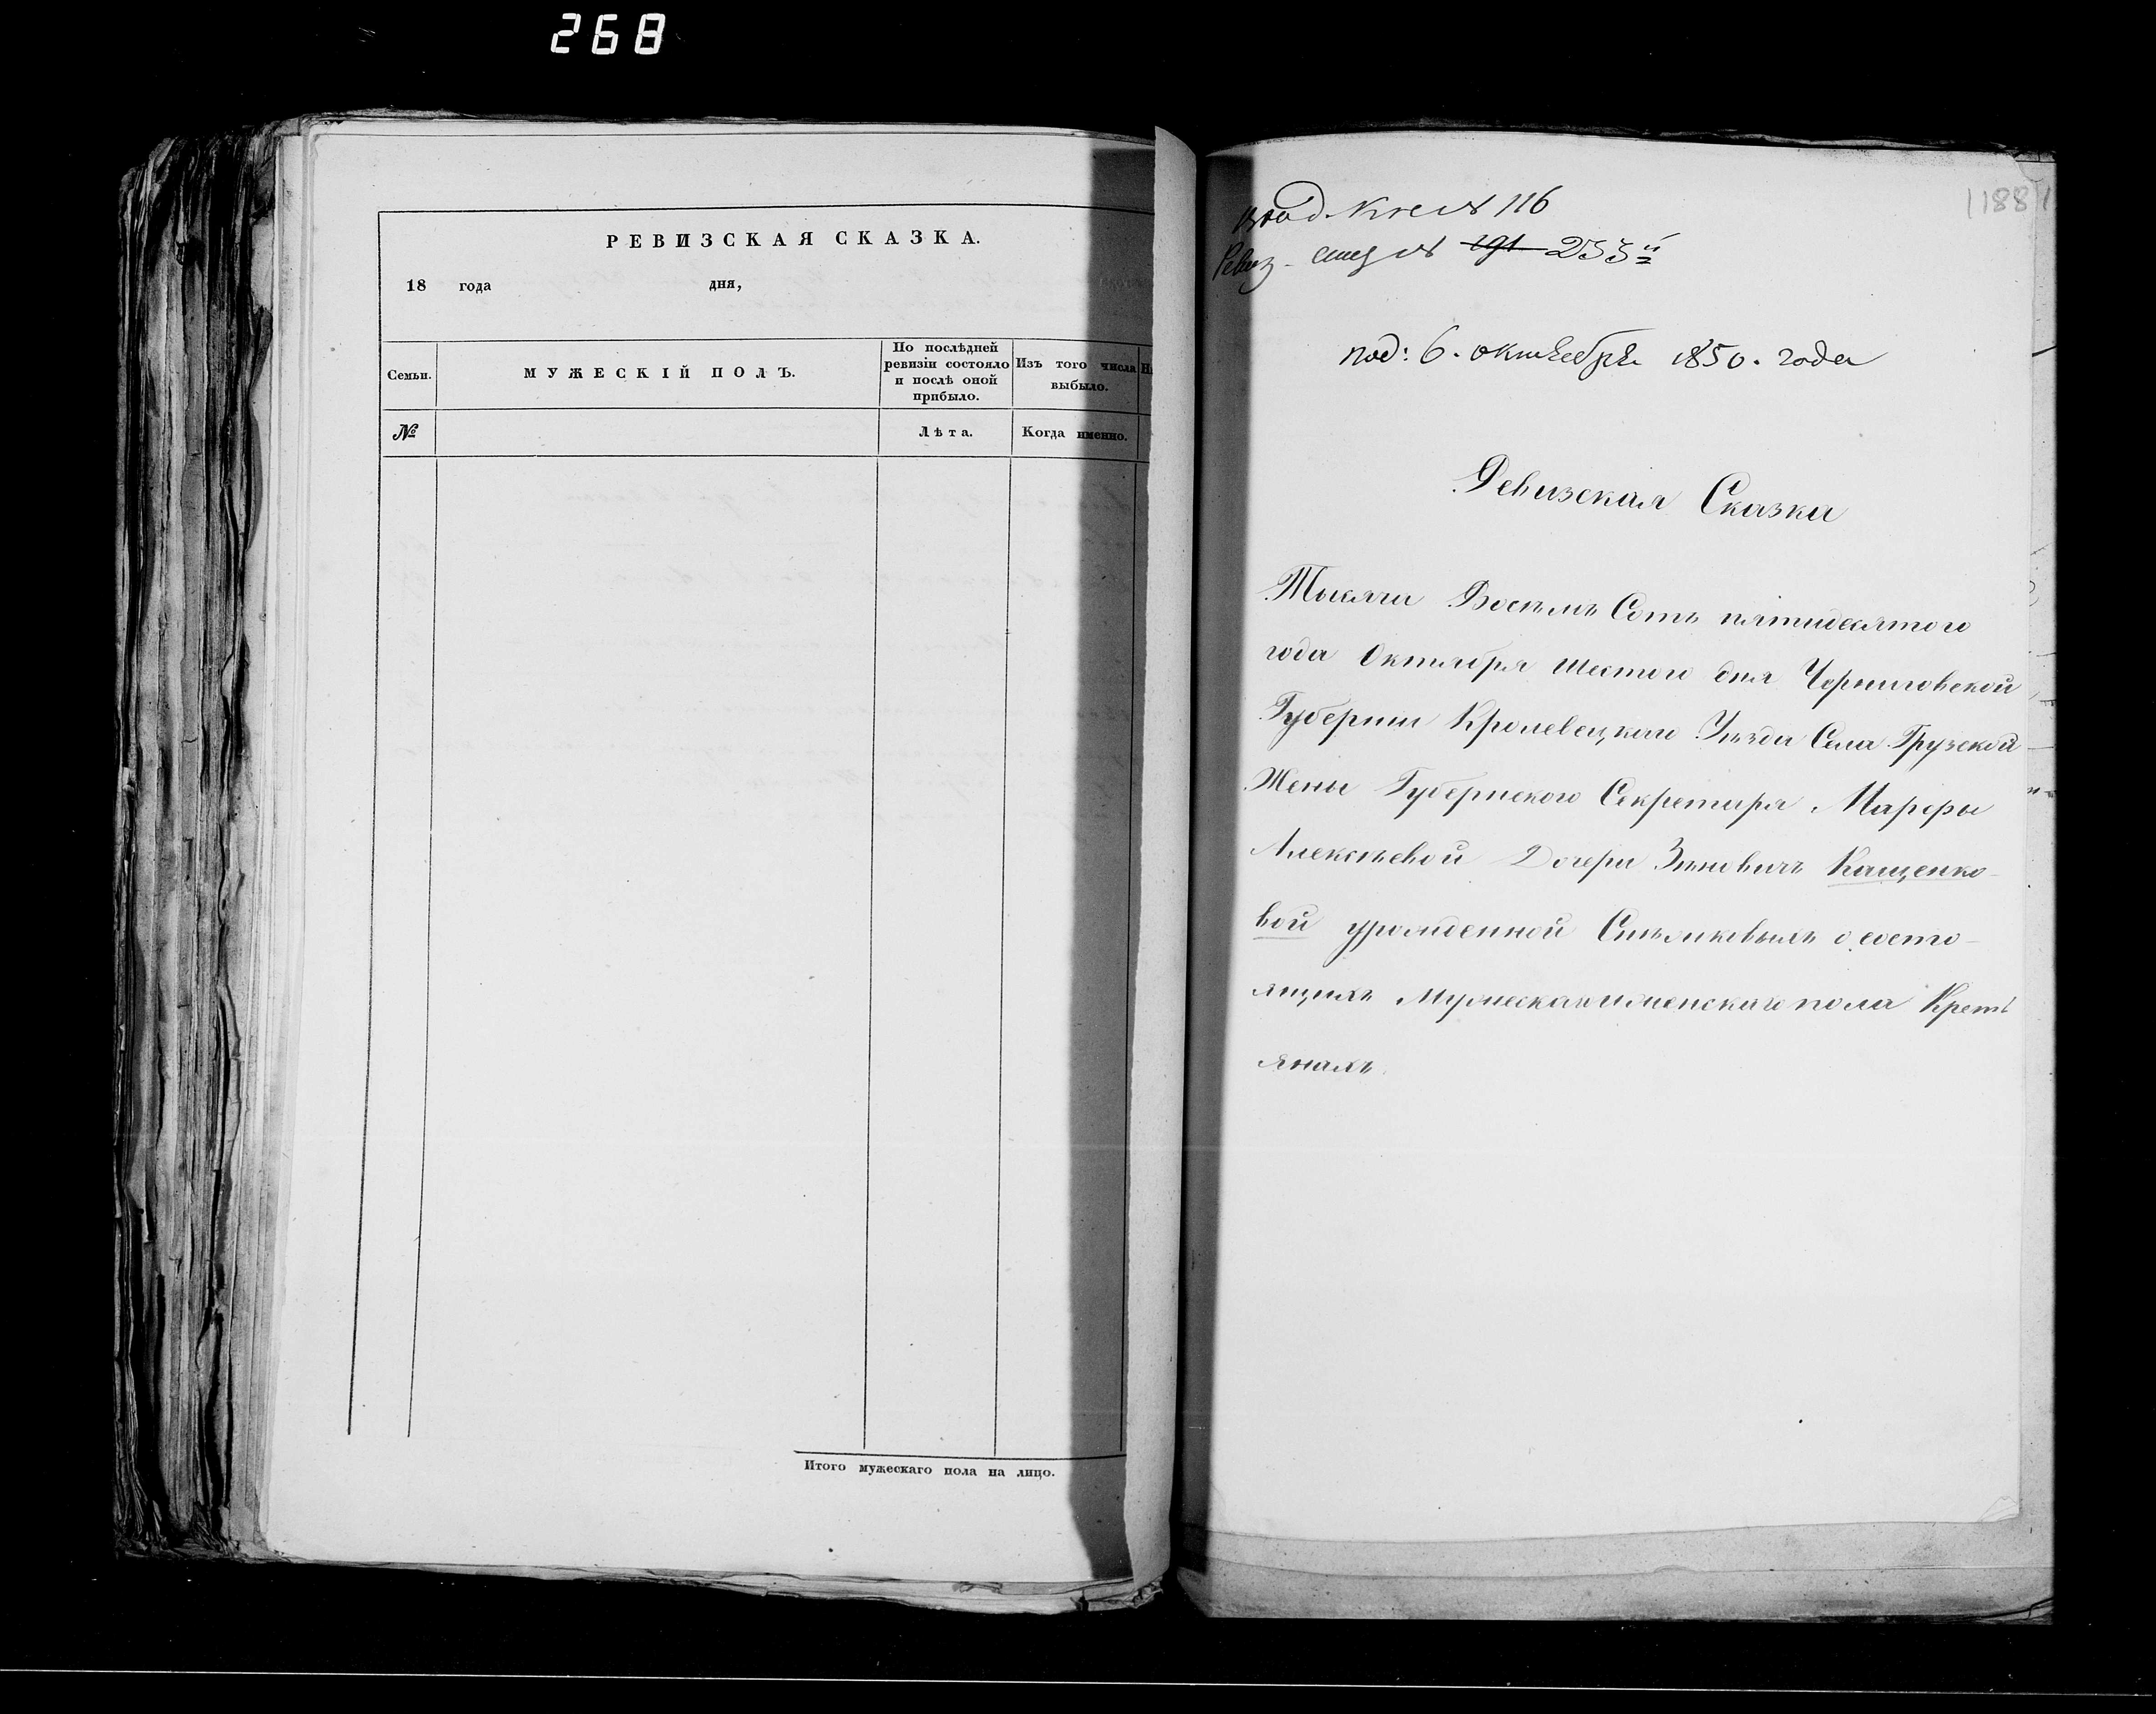 268
РЕВИЗСКАЯ СКАЗКА.
18 года дня,
Семьи.
МУЖЕСКІЙ ПОЛЪ.
По послѣдней
ревизіи состояло
и послѣ оной
прибыло.
Изъ того числа
выбыло.
№
Лѣта.
Когда именно.
Итого мужескаго пола на лицо.
1188
№ 116
Ревиз. № 191 233й
под: 6. октября 1850. года
Ревизская Сказка
Тысячи Восемь Сотъ пятидесятого
года Октября шестого дня Черниговской
Губернии Кролевецкаго Уезда Села Грузской
Жены Губернского Секретаря Марфы
Алексѣевой Дочери Зѣновичъ Кащенко-
вой урожденной о состо-
ящихъ Мужеска и женскаго пола Крестъ
янахъ.